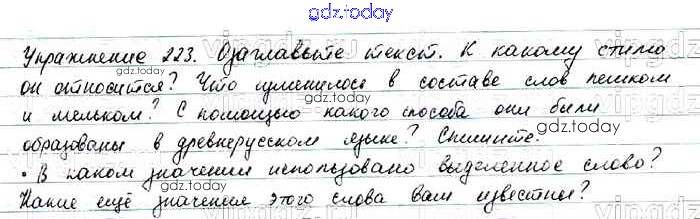 gdz.today
Упражнение 223. Озаглавьте текст. К какому стилю
он относится? Что изменилось в составе слов пешком
и мельком? С помощью какого способа они были
образованы в древнерусском языке? Спишите.
• В каком значении использовано выделенное слово?
Какие ещё значение этого слова вам известны?
gdz.today
gdz.today
gdz.today
gdz.today